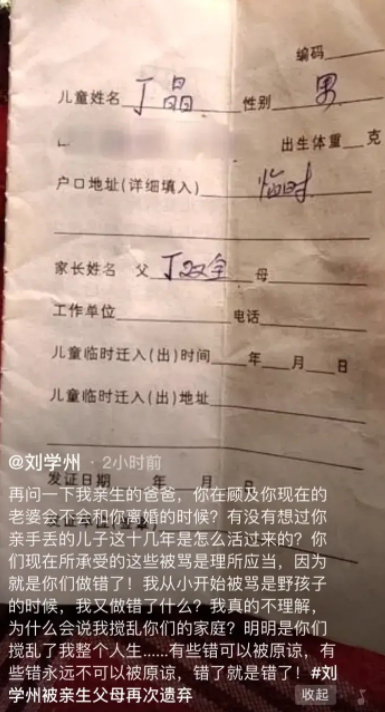 编码
儿童姓名 丁晶 性别 男
出生体重 克
户口地址(详细填入) 临时
家长姓名 父 丁双全 母
工作单位 电话
儿童临时迁入(出)时间 年 月 日
儿童临时迁入(出)地址
@刘学州 · 2小时前
发证日期 年 月 日
再问一下我亲生的爸爸，你在顾及你现在的
老婆会不会和你离婚的时候？有没有想过你
亲手丢的儿子这十几年是怎么活过来的？你
们现在所承受的这些被骂是理所应当，因为
就是你们做错了！我从小开始被骂是野孩子
的时候，我又做错了什么？我真的不理解，
为什么会说我搅乱你们的家庭？明明是你们
搅乱了我整个人生......有些错可以被原谅，有
些错永远不可以被原谅，错了就是错了！#刘
学州被亲生父母再次遗弃 收起